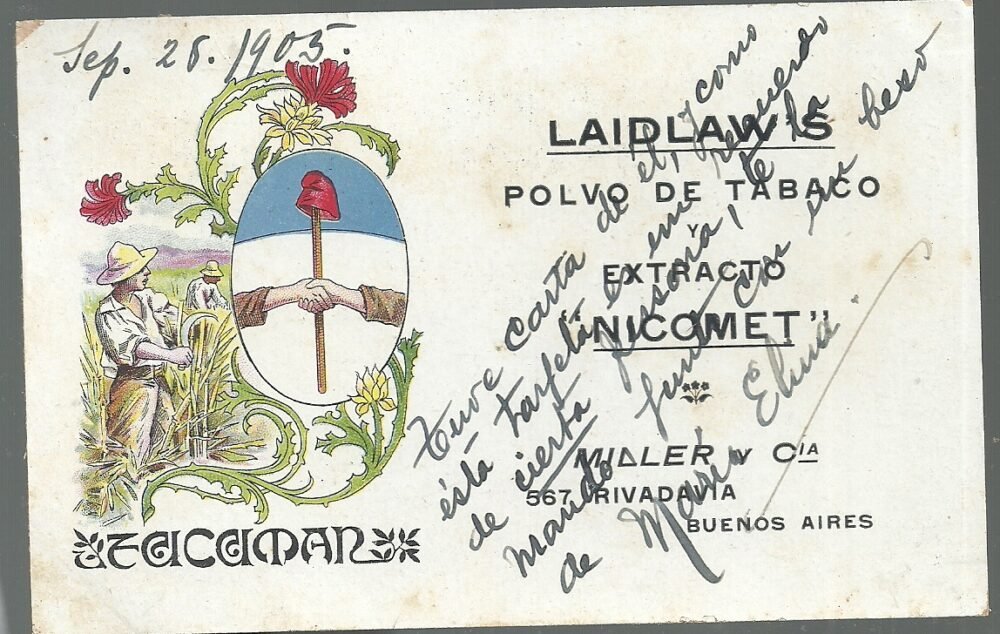 Sep. 28. 1905.
LAIDLAW'S
POLVO DE TABACO
Y
EXTRACTO
"NICOMET"
MILLER Y CIA
567, RIVADAVIA
BUENOS AIRES
TUCUMAN
Tuve carta de el, y como
ésta tarjeta es un recuerdo
de cierta persona, te la
mando junto con un beso
de María Elina